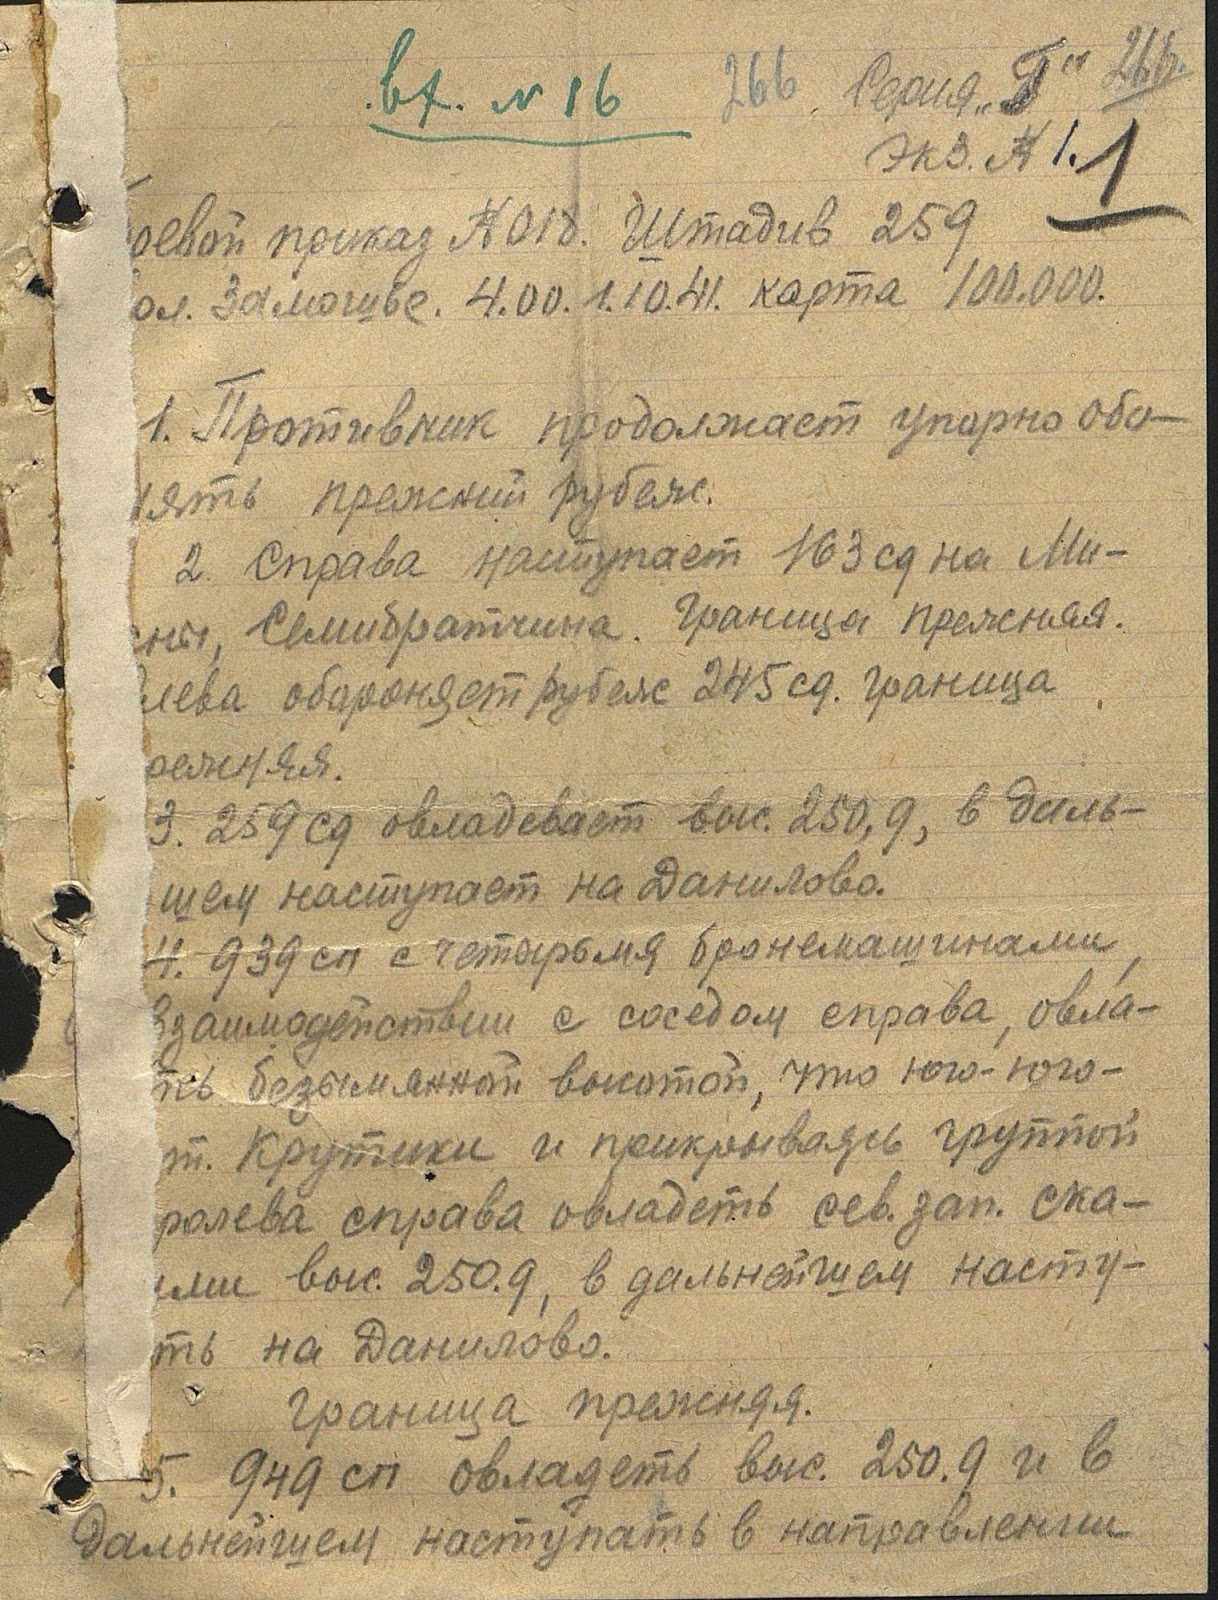 вх. № 16 266 Серия „Г" 266.
Экз. № 1. 1
оевой приказ № 018. Штадив 259
ол. Замошье. 4.00. 1.10.41. карта 100.000.
1. Противник продолжает упорно обо-
нять прежний рубеж.
2. Справа наступает 163 сд на Ми-
Семибратчина. Граница прежняя.
лева обороняет рубеж 245 сд. Граница
режняя.
3. 259 сд овладевает выс. 250,9, в даль-
шем наступает на Данилово.
4. 939 сп с четырьмя бронемашинами,
взаимодействии с соседом справа, овла-
ть безымянной высотой, что юго-юго-
т. Крутики и прикрываясь группой
ролева справа овладеть сев. зап. ска-
ми выс. 250.9, в дальнейшем насту-
ть на Данилово.
Граница прежняя.
5. 949 сп овладеть выс. 250.9 и в
дальнейшем наступать в направлении